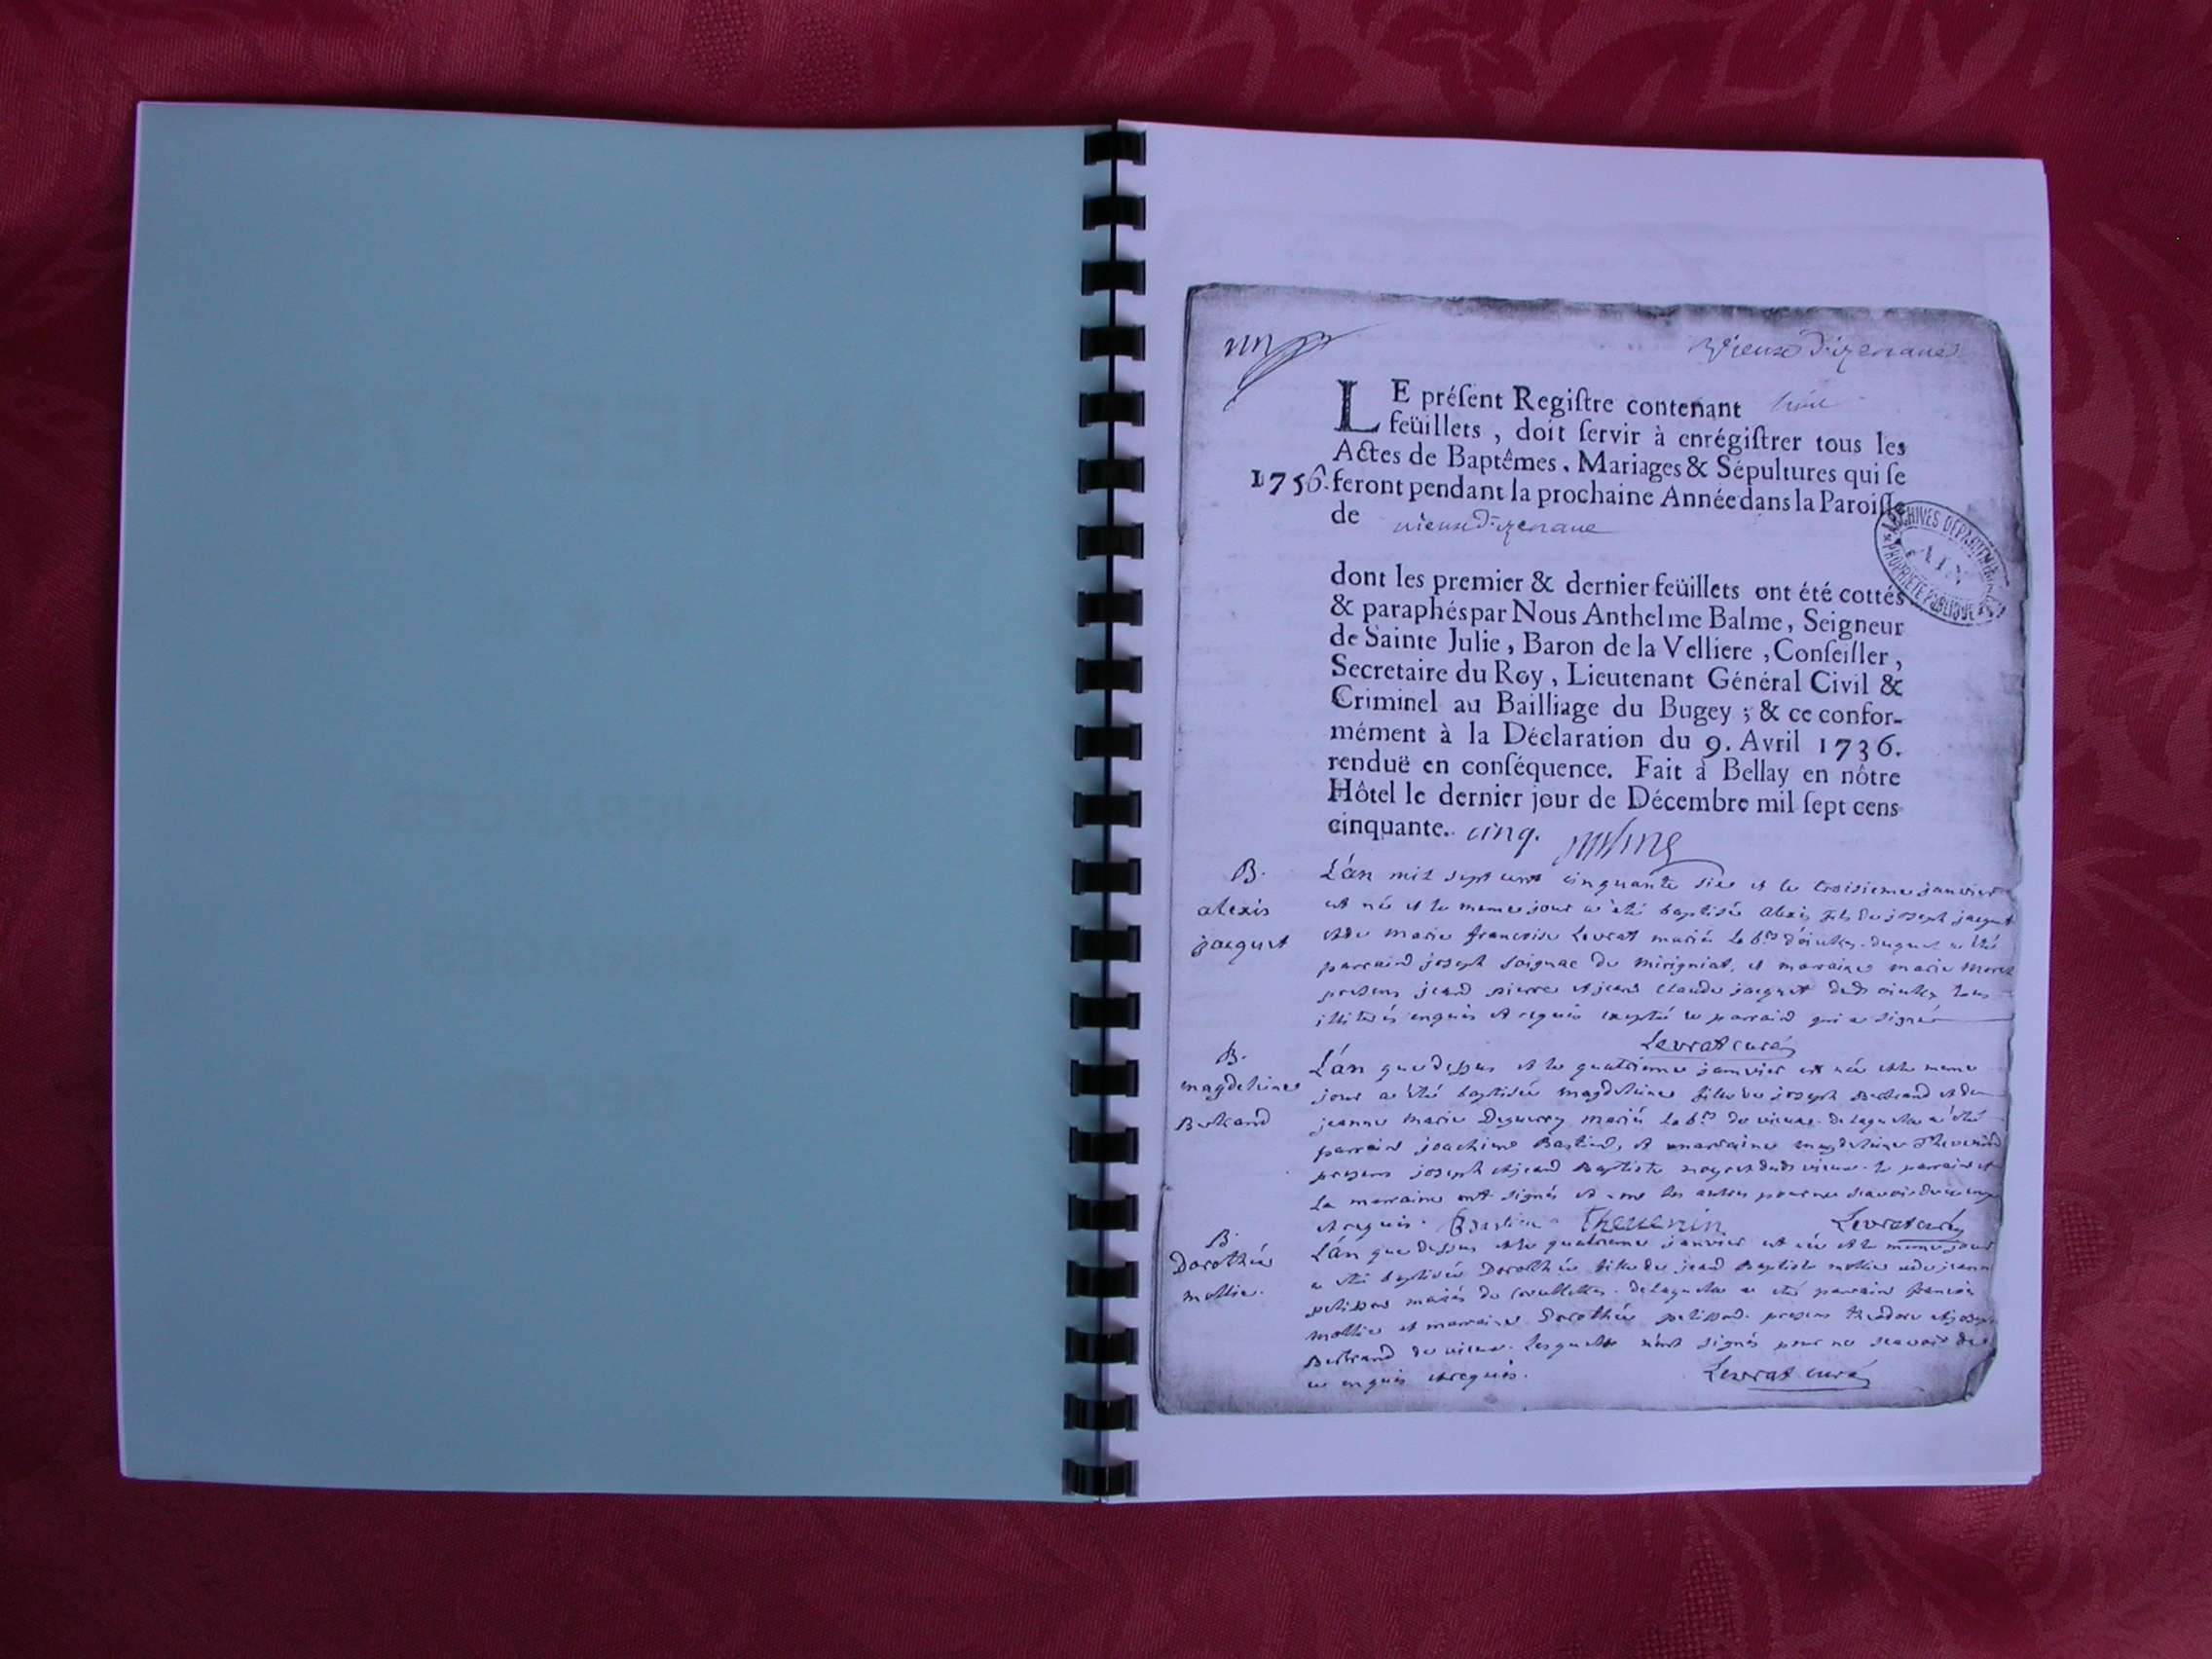 LE préſent Regiſtre contenant
feüillets, doit ſervir à enrégiſtrer tous les
Actes de Baptêmes, Mariages & Sépultures qui ſe
1756. feront pendant la prochaine Année dans la Paroiſſe
de vieux d'izenave
ARCHIVES DÉPARTEMENTALES
AIN
PROPRIÉTÉ PUBLIQUE
dont les premier & dernier feüillets ont été cottés
& paraphés par Nous Anthelme Balme, Seigneur
de Sainte Julie, Baron de la Velliere, Conſeiller,
Secretaire du Roy, Lieutenant Général Civil &
Criminel au Bailliage du Bugey ; & ce confor-
mément à la Déclaration du 9. Avril 1736.
renduë en conſéquence. Fait à Bellay en nôtre
Hôtel le dernier jour de Décembre mil ſept cens
cinquante. cinq.
B.
alexis
jacquet
L'an mil sept cent cinquante six et le troisieme janvier
est né et le meme jour a été baptisé alexis fils de joseph jacquet
et de marie francoise Levrat mariés
parrain joseph de mirigniat, et marraine marie
presens jean pierre et jean claude jacquet tous
illiterés enquis et requis excepté le parrain qui a signé
Levrat curé
B.
magdeleine
Bertrand
L'an que dessus et le quatrieme janvier est née et le meme
jour a été baptisée magdeleine fille de joseph Bertrand et de
jeanne marie mariés de vieux. de laquelle a été
parrain joachim Bastien, et marraine magdeleine Thevenin
presens joseph et jean Baptiste de vieux. le parrain et
la marraine ont signés et non les autres pour ne scavoir de ce enquis
et requis. Bastien Thevenin Levrat curé
B.
Dorothée
mollie.
L'an que dessus et le quatrieme janvier est née et le meme jour
a été baptisée Dorothée fille de jean Baptiste mollie et de jeanne
pelisson mariés de. de laquelle a été parrain francois
mollie et marraine Dorothée pelisson. presens theodore et joseph
Bertrand de vieux. lesquels n'ont signés pour ne scavoir de
ce enquis et requis.
Levrat curé